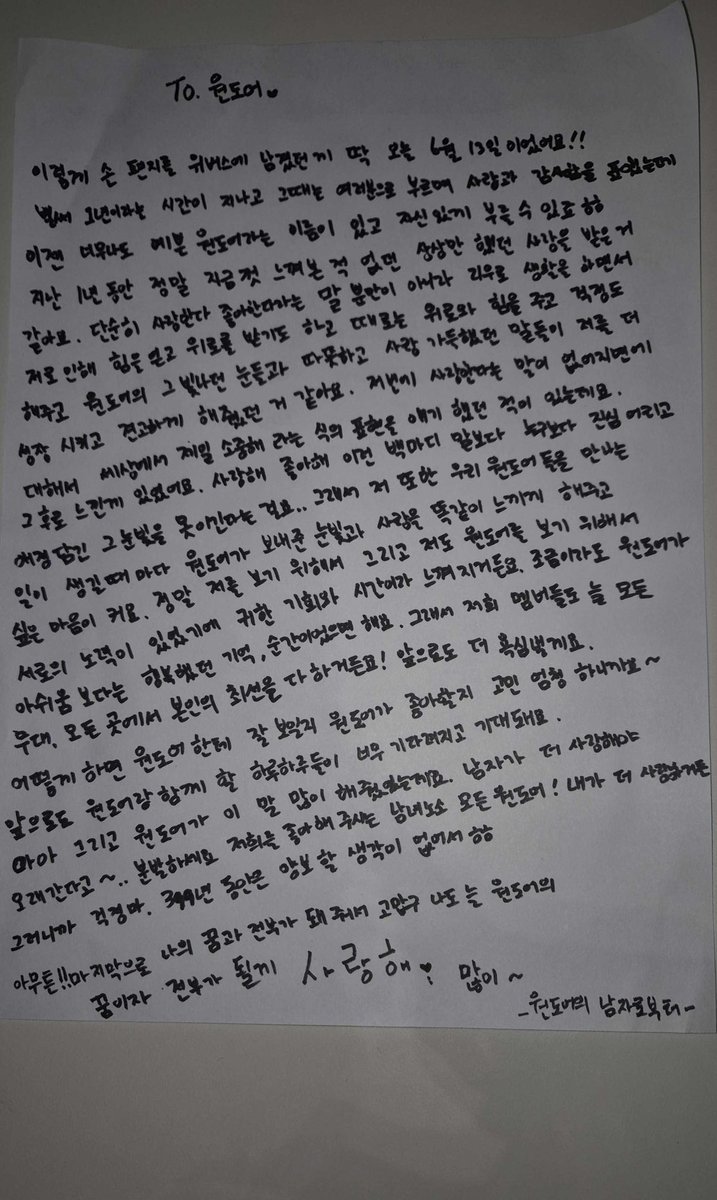 To. 원도어♥
이렇게 손 편지를 위버스에 남겼던게 딱 오늘 6월 13일이었어요!!
벌써 1년이라는 시간이 지나고 그때는 여러분으로 부르며 사랑과 감사함을 표했는데
이젠 너무나도 예쁜 원도어라는 이름이 있고 자신있게 부를 수 있죠 핳
지난 1년 동안 정말 지금껏 느껴본 적 없던 상상만 했던 사랑을 받은 거
같아요. 단순히 사랑한다 좋아한다라는 말 뿐만이 아니라 리우로 생활을 하면서
저로 인해 힘을 얻고 위로를 받기도 하고 때로는 위로와 힘을 주고 걱정도
해주고 원도어의 그 빛나던 눈들과 따뜻하고 사랑 가득했던 말들이 저를 더
성장 시키고 견고하게 해줬던 거 같아요. 저번에 사랑한다는 말이 없어지면에
대해서 세상에서 제일 소중해 라는 식의 표현을 얘기 했던 적이 있는데요.
그 후로 느낀게 있었어요. 사랑해 좋아해 이런 백마디 말보다 누구보다 진심 어리고
애정 담긴 그 눈빛을 못이긴다는 걸요.. 그래서 저 또한 우리 원도어들을 만나는
일이 생길 때 마다 원도어가 보내준 눈빛과 사랑을 똑같이 느끼게 해주고
싶은 마음이 커요. 정말 저를 보기 위해서 그리고 저도 원도어를 보기 위해서
서로의 노력이 있었기에 귀한 기회와 시간이라 느껴지거든요. 조금이라도 원도어가
아쉬움 보다는 행복했던 기억, 순간이었으면 해요. 그래서 저희 멤버들도 늘 모든
무대, 모든 곳에서 본인의 최선을 다 하거든요! 앞으로도 더 욕심낼게요.
어떻게 하면 원도어한테 잘 보일지 원도어가 좋아할지 고민 엄청 하니까요~
앞으로도 원도어랑 함께 할 하루하루들이 너무 기다려지고 기대돼요.
마아 그리고 원도어가 이 말 많이 해줬었는데요. 남자가 더 사랑해야
오래간다고~.. 분발하세요 저희를 좋아해 주시는 남녀노소 모든 원도어! 내가 더 사랑하거든
그러니까 걱정마. 399년 동안은 양보할 생각이 없어서 핳
아무튼!! 마지막으로 나의 꿈과 전부가 돼 주어서 고맙구 나도 늘 원도어의
꿈이자 전부가 될게 사랑해♥ 많이~
-원도어의 남자로부터-